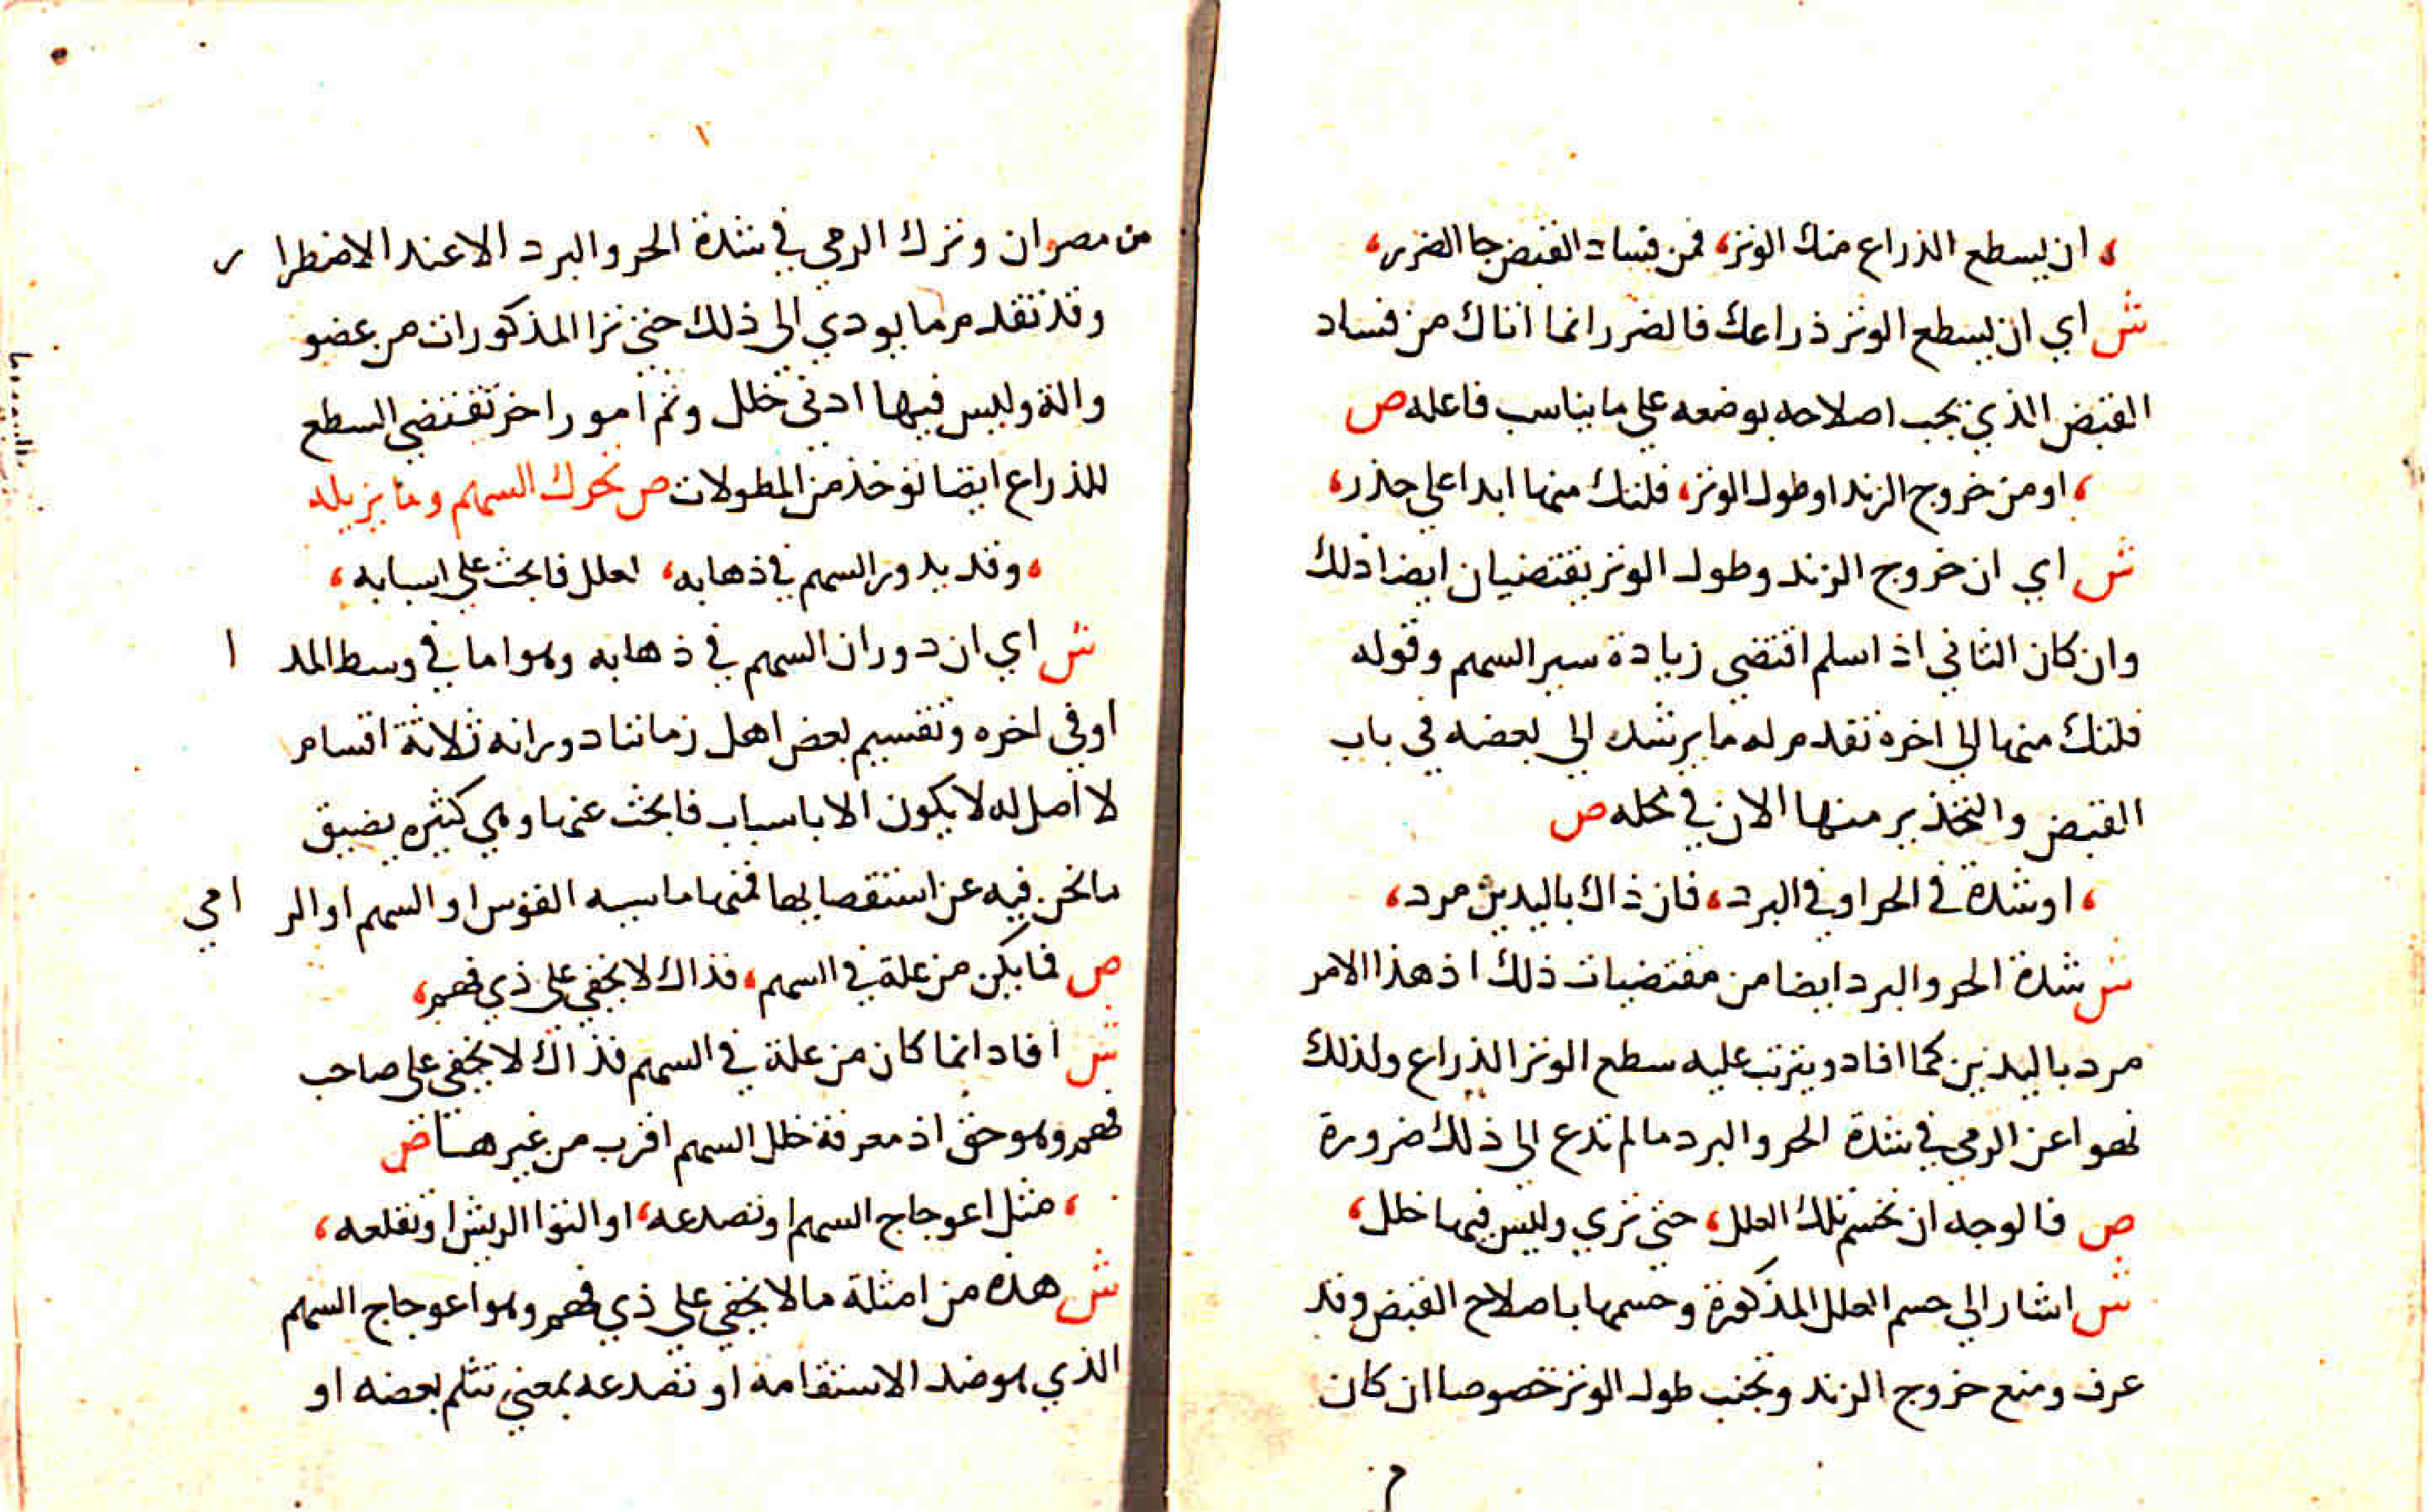 ، ان يسطع الذراع منك الوتر، فمن فساد القبض جا الضرر،
ش اي ان يسطع الوتر ذراعك فالضرر انما اتاك من فساد
القبض الذي يجب اصلاحه بوضعه علي ما يناسب فاعله ص
، او من خروج الزند او طول الوتر، فلتك منها ابدا علي حذر،
ش اي ان خروج الزند وطول الوتر يقتضيان ايضا ذلك
وان كان الثاني اذ اسلم اقتضي زيادة سير السهم وقوله
فلتك منها الي اخره تقدم له ما يرشد الي بعضه في باب
القبض والتحذير منها الان في محله ص
، او شدة في الحر او في البرد، فان ذاك باليدين مرد،
ش شدة الحر والبرد ايضا من مقتضيات ذلك اذ هذا الامر
مرد باليدين كما افاد ويترتب عليه سطع الوتر الذراع ولذلك
نهوا عن الرمي في شدة الحر والبرد ما لم تدع الي ذلك ضرورة
ص فالوجه ان تحسم تلك العلل، حتي تري وليس فيها خلل،
ش اشار الي حسم العلل المذكورة وحسمها باصلاح القبض وقد
عرف ومنع خروج الزند وتجنب طول الوتر خصوصا ان كان
من مصران وترك الرمي في شدة الحر والبرد الا عند الاضطرا ر
وقد تقدم ما يودي الي ذلك حتي ترا المذكورات من عضو
والة وليس فيها ادني خلل وثم امور اخر تقتضي السطع
للذراع ايضا توخذ من المطولات ص تحرك السهم وما يزيله
، وقد يدور السهم في ذهابه، لعلل فابحث علي اسبابه،
ش اي ان دوران السهم في ذهابه وهو اما في وسط المد ا
او في اخره وتقسيم بعض اهل زماننا دورانه ثلاثة اقسام
لا اصل له لا يكون الا باسباب فابحث عنها وهي كثيره يضيق
ما نحن فيه عن استقصايها فمنها ما سببه القوس او السهم او الر امي
ص فما يكن من علة في السهم، فذاك لا يخفي علي ذي فهم،
ش افاد انما كان من علة في السهم فذاك لا يخفي علي صاحب
فهم وهو حق اذ معرفة خلل السهم اقرب من غيرها ص
، مثل اعوجاج السهم او تصدعه، او التوا الريش او تقلعه،
ش هذه من امثلة ما لا يخفي علي ذي فهم وهو اعوجاج السهم
الذي هو ضد الاستقامة او تصدعه بمعني تثلم بعضه او